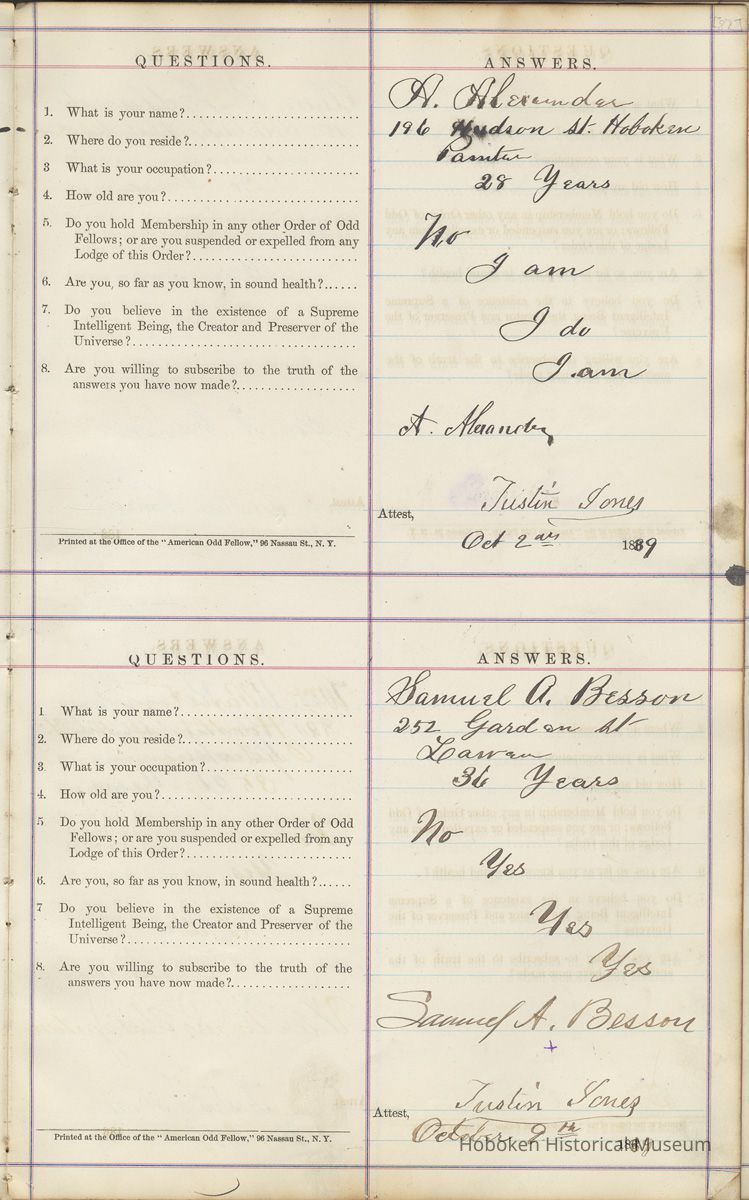 [37]
QUESTIONS.
ANSWERS.
1. What is your name?
A. Alexander
2. Where do you reside?
196 Hudson St. Hoboken
3 What is your occupation?
Painter
4. How old are you?
28 Years
5. Do you hold Membership in any other Order of Odd
Fellows; or are you suspended or expelled from any
Lodge of this Order?
No
6. Are you, so far as you know, in sound health?
I am
7. Do you believe in the existence of a Supreme
Intelligent Being, the Creator and Preserver of the
Universe?
I do
8. Are you willing to subscribe to the truth of the
answers you have now made?
I am
A. Alexander
Attest, Justin Jones
Oct 2 1889
Printed at the Office of the "American Odd Fellow," 96 Nassau St., N. Y.
QUESTIONS.
ANSWERS.
1 What is your name?
Samuel A. Besson
2. Where do you reside?
252 Garden St
3 What is your occupation?
Lawyer
4. How old are you?
36 Years
5 Do you hold Membership in any other Order of Odd
Fellows; or are you suspended or expelled from any
Lodge of this Order?
No
6. Are you, so far as you know, in sound health?
Yes
7 Do you believe in the existence of a Supreme
Intelligent Being, the Creator and Preserver of the
Universe?
Yes
8. Are you willing to subscribe to the truth of the
answers you have now made?
Yes
Samuel A. Besson
Attest, Justin Jones
October 9th
Printed at the Office of the "American Odd Fellow," 96 Nassau St., N. Y.
Hoboken Historical Museum